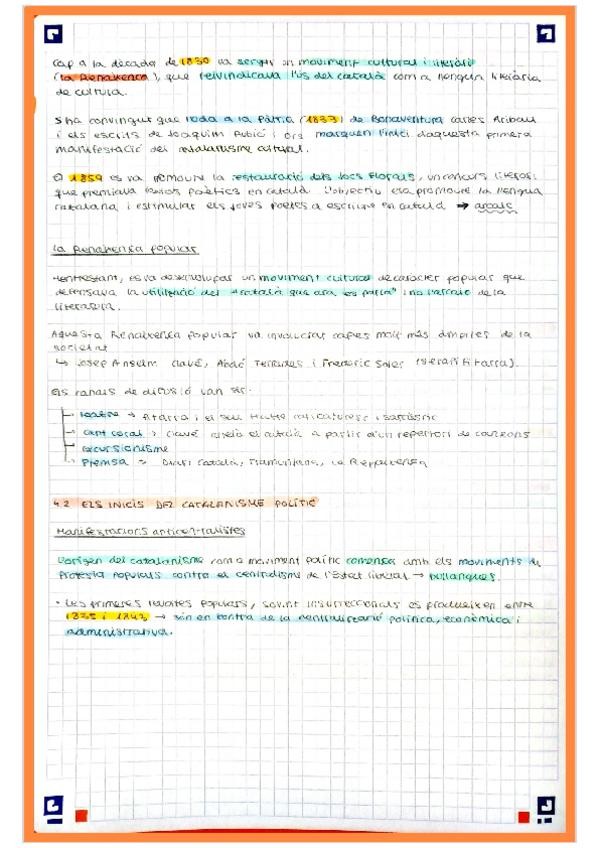 Cap a la dècada de 1830 va sorgir un moviment cultural i literari
(la Renaixença), que reivindicava l'ús del català com a llengua literària
de cultura.
S'ha convingut que l'oda a la Pàtria (1833) de Bonaventura Carles Aribau
i els escrits de Joaquim Rubió i Ors marquen l'inici d'aquesta primera
manifestació del catalanisme cultural.
El 1859 es va promoure la restauració dels Jocs Florals, un concurs literari
que premiava textos poètics en català. L'objectiu era promoure la llengua
catalana i estimular els joves poetes a escriure en català → arcaic
La Renaixença popular
Mentrestant, es va desenvolupar un moviment cultural de caràcter popular que
defensava la utilització del "català que ara es parla" i no l'arcaic de la
literatura.
Aquesta Renaixença popular va involucrar capes molt més àmplies de la
societat
↳ Josep Anselm Clavé, Abdó Terrades i Frederic Soler (Serafí Pitarra).
Els canals de difusió van ser:
- Teatre → Pitarra i el seu teatre caricaturesc i sarcàstic
- Cant coral → Clavé a partir d'un repertori de cançons
- Excursionisme
- Premsa → Diari Català, Tramuntana, La Renaixensa
4.2 ELS INICIS DEL CATALANISME POLÍTIC
Manifestacions anticentralistes
L'origen del catalanisme com a moviment polític comença amb els moviments de
protesta populars contra el centralisme de l'Estat liberal → bullangues.
· Les primeres revoltes populars, sovint insurreccionals es produeixen entre
1835 i 1843 → són en contra de la centralització política, econòmica i
administrativa.